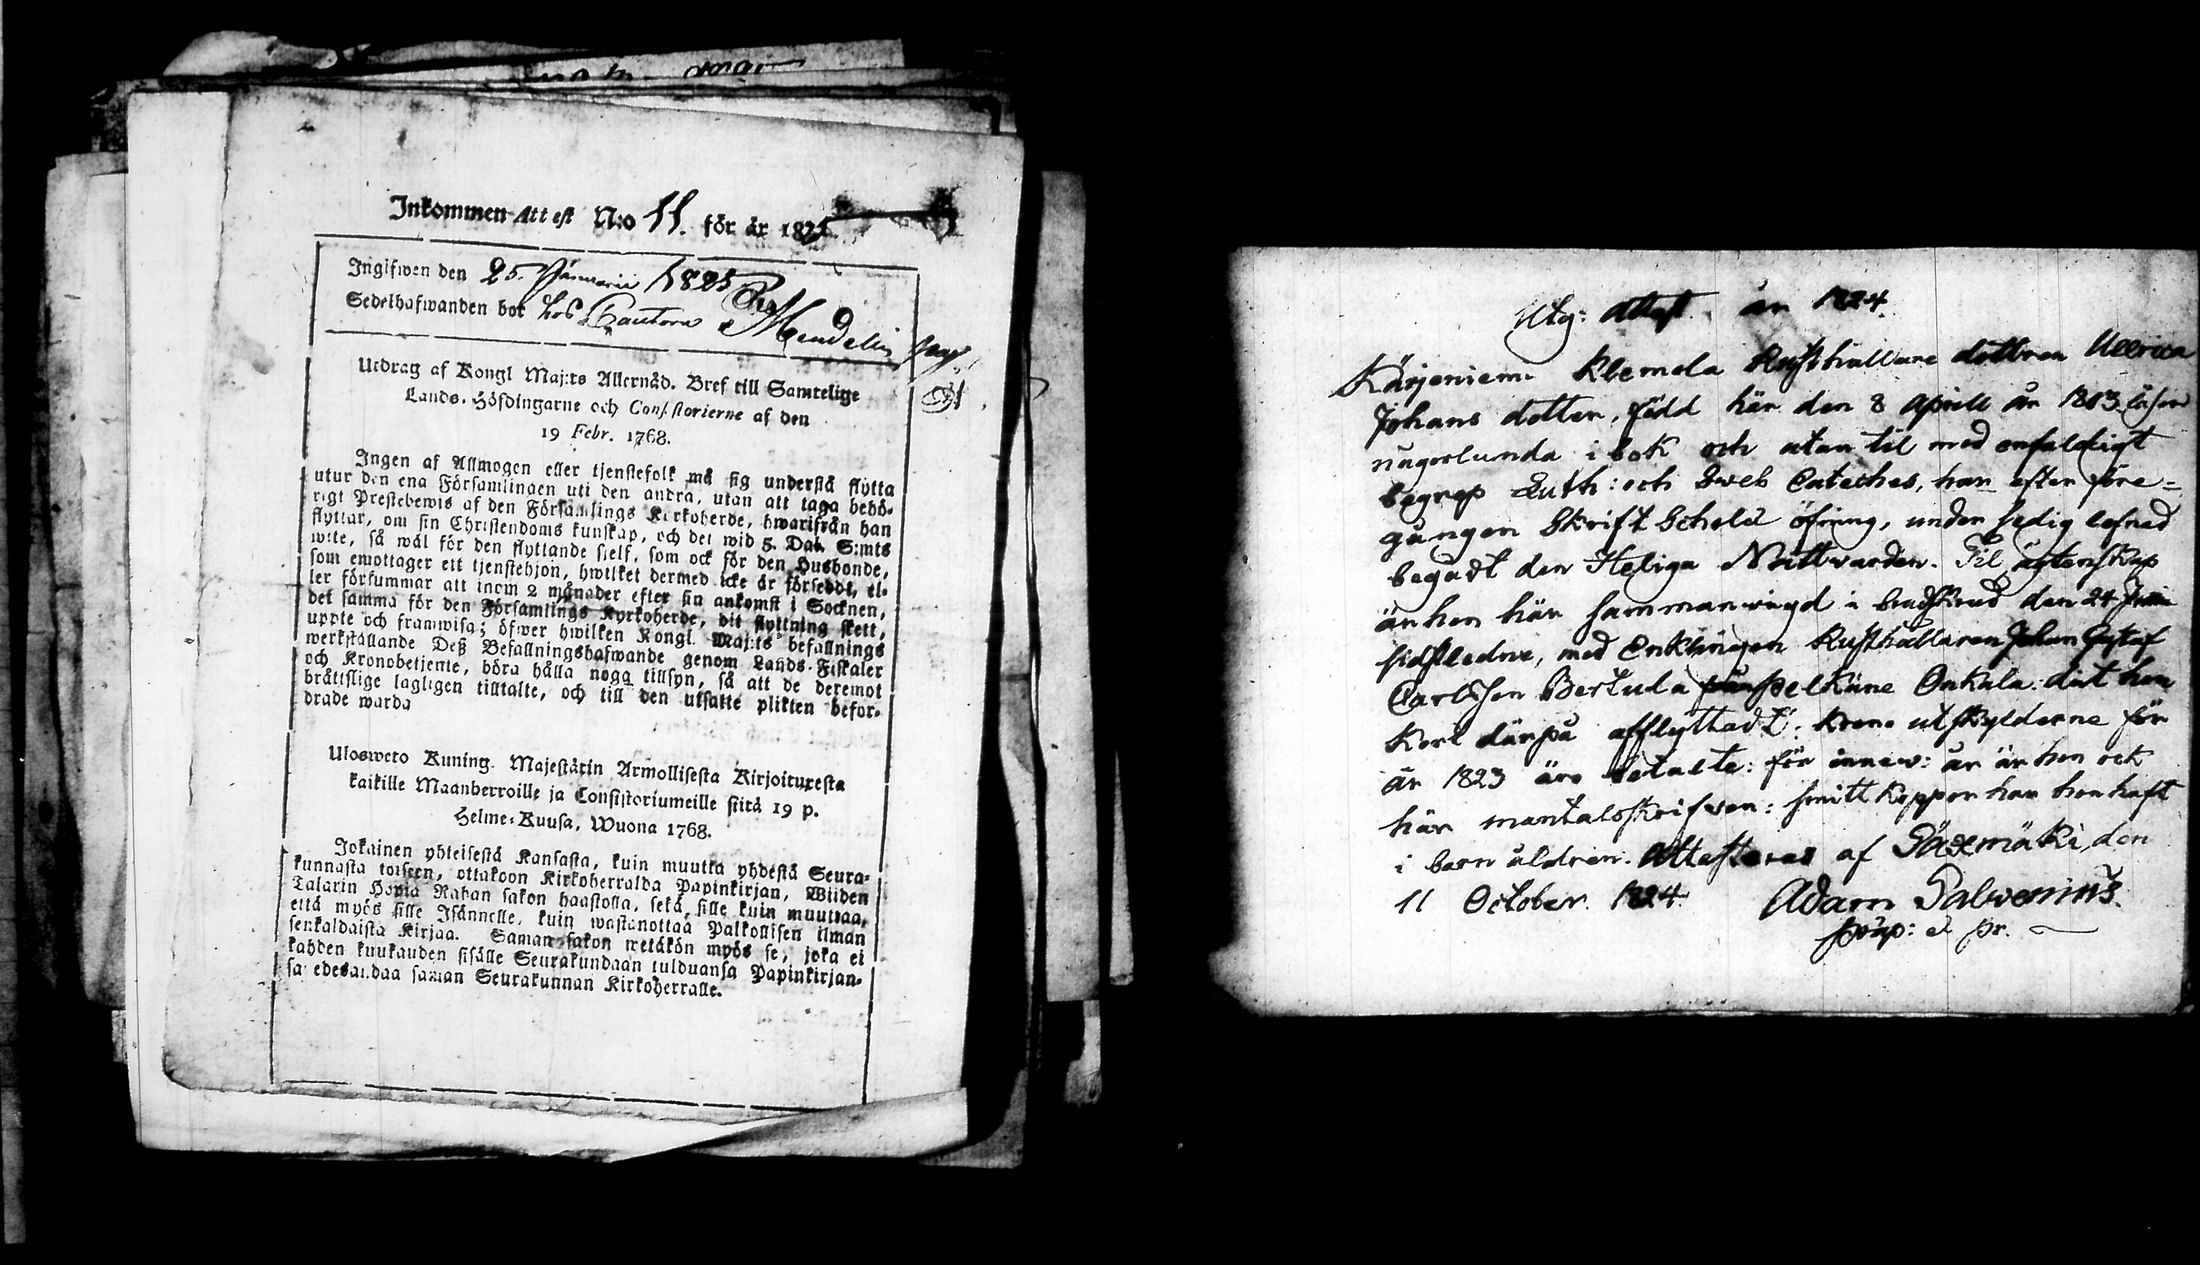 Inkommen Attest N:o 11. för år 1825
Ingifwen den 25 Januarii 1825
Sedelhafwanden bor hos Cantorn Mendelin
Utdrag af Kongl Maj:ts Allernåd. Bref till Samtelige
Lands-Höfdingarne och Consistorierne af den
19 Febr. 1768.
Ingen af Allmogen eller tjenstefolk må sig understå flytta
utur den ena Församlingen uti den andra, utan att taga behö-
rigt Prestebewis af den Församlings Kyrkoherde, hwarifrån han
flyttar, om sin Christendoms kunskap, och det wid 5. Dal. S:mts
wite, så wäl för den flyttande sielf, som ock för den Husbonde,
som emottager ett tjenstehjon, hwilket dermed icke är försedt, el-
ler försummar att inom 2 månader efter sin ankomst i Socknen,
det samma för den Församlings Kyrkoherde, dit flyttning skett,
uppte och framwisa; öfwer hwilken Kongl. Maj:ts befallnings
werkställande Deß Befallningshafwande genom Lands-Fiskaler
och Kronobetjente, böra hålla noga tillsyn, så att de deremot
bråttslige lagligen tilltalte, och till den utsatte plikten befor-
drade warda
Ulosweto Kuning. Majestätin Armollisesta Kirjoituxesta
kaikille Maanherroille ja Consistoriumeille siitä 19 p.
Helme-Kuusa, Wuona 1768.
Jokainen yhteisestä Kansasta, kuin muutta yhdestä Seura-
kunnasta toiseen, ottakoon Kirkoherralda Papinkirjan, Wiiden
Talarin Hopia Rahan sakon haastolla, sekä sille kuin muuttaa,
että myös sille Isännelle, kuin wastanottaa Palkollisen ilman
senkaldaista Kirjaa. Saman sakon wetäkön myös se, joka ei
kahden kuukauden sisälle Seurakundaan tulduansa Papinkirjan-
sa edesandaa saman Seurakunnan Kirkoherralle.
Utg: attest år 1824.
Kärjeniemi Klemola Rusthållare dottren Ullrica
Johans dotter, född här den 8 Aprill år 1803 läser
någorlunda i bok och utan til med enfaldigt
begrep Luth: och Sveb Cateches, har efter före-
gången Skrift Schola öfning, under sedig lefnad
begådt den Heliga Nattvarden. Til ägtenskap
är hon här sammanvigd i brudskrud den 24 Junii
sidstledne, med Enklingen Rusthållaren Johan Gustaf
Carlsson Bertula Pelkäne Onkala: dit hon
kort därpå afflyttadt: krono utskylderne för
år 1823 äro betalte: för innew: år är hon ock
här mantalsskrifven: smittkoppor har hon haft
i barn åldren. Attesteras af Sääxmäki, den
11 October. 1824. Adam Salvenius.
pråp: et pr.